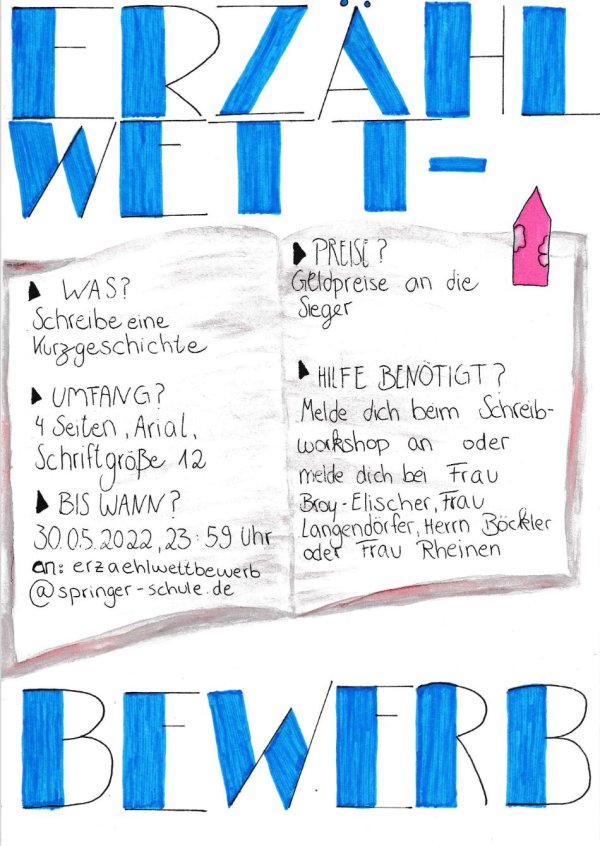 ERZÄHL
WETT-
WAS?
Schreibe eine
Kurzgeschichte
UMFANG?
4 Seiten, Arial,
Schriftgröße 12
BIS WANN?
30.05.2022, 23:59 Uhr
an: erzaehlwettbewerb
@springer-schule.de
PREISE?
Geldpreise an die
Sieger
HILFE BENÖTIGT?
Melde dich beim Schreib-
workshop an oder
melde dich bei Frau
Broy-Elischer, Frau
Langendörfer, Herrn Böckler
oder Frau Rheinen
BEWERB